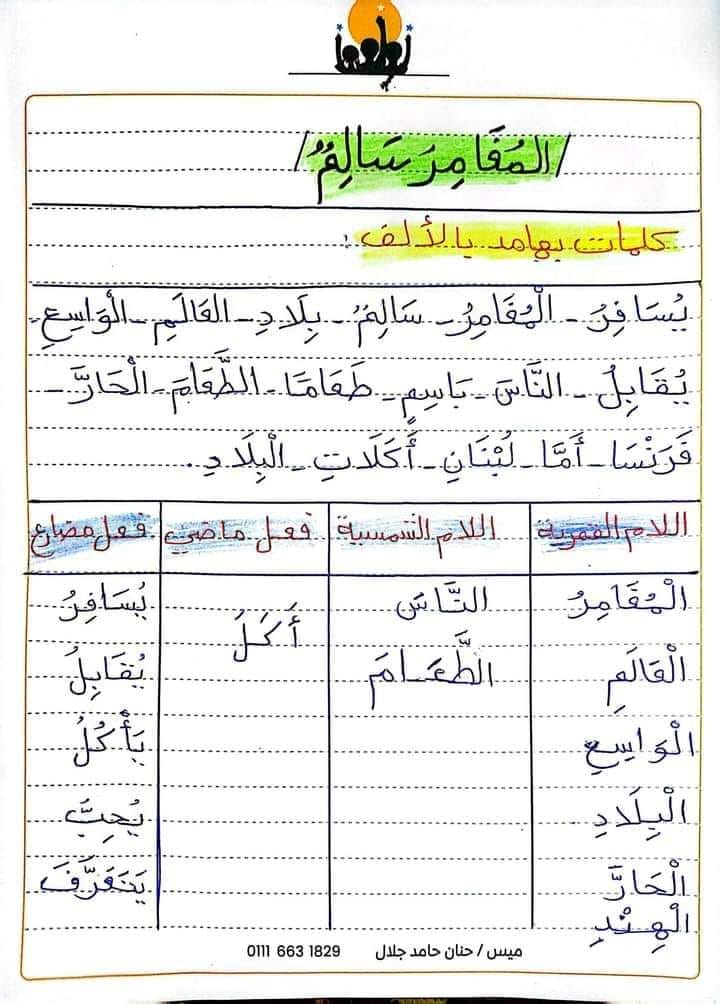 / المُغَامِرُ سَالِمٌ /
كلمات بها مد بالألف :
يُسَافِرُ - الْمُغَامِرُ - سَالِمٌ - بِلَادِ - العَالَمِ - الْوَاسِعِ -
يُقَابِلُ - النَّاسَ - بَاسِمٍ - طَعَامَا - الطَّعَامَ - الْحَارَّ -
فَرَنْسَا - أَمَّا - لُبْنَانِ - أَكَلَاتِ - الْبِلَادِ .
اللام القمرية | اللام الشمسية | فعل ماضي | فعل مضارع
الْمُغَامِرُ | النَّاسَ | أَكَلَ | يُسَافِرُ
الْعَالَمِ | الطَّعَامَ | يُقَابِلُ
الْوَاسِعِ | يَأْكُلُ
الْبِلَادِ | يُحِبُّ
الْحَارَّ | يَتَعَرَّفَ
الْهِنْدِ
ميس / حنان حامد جلال 0111 663 1829